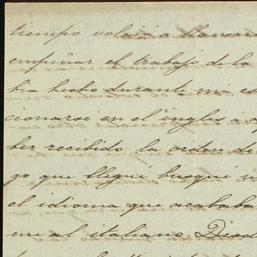 tiempo volviá a llamar
empeñar el trabajo de la
bia hecho durante mi es
cionarse en el ingles ó a
ber recibido la orden de
go que llegué busqué u
el idioma que acababa
mi al italiano. Desd